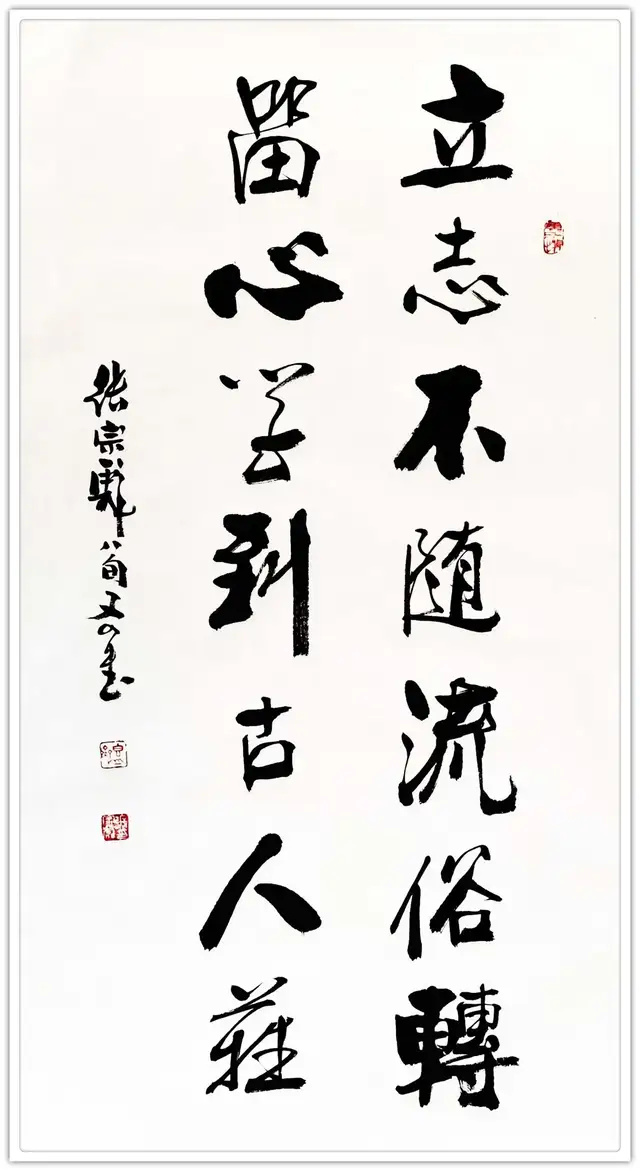 立志不随流俗轉
留心学到古人莊
張宗彪八旬又四書